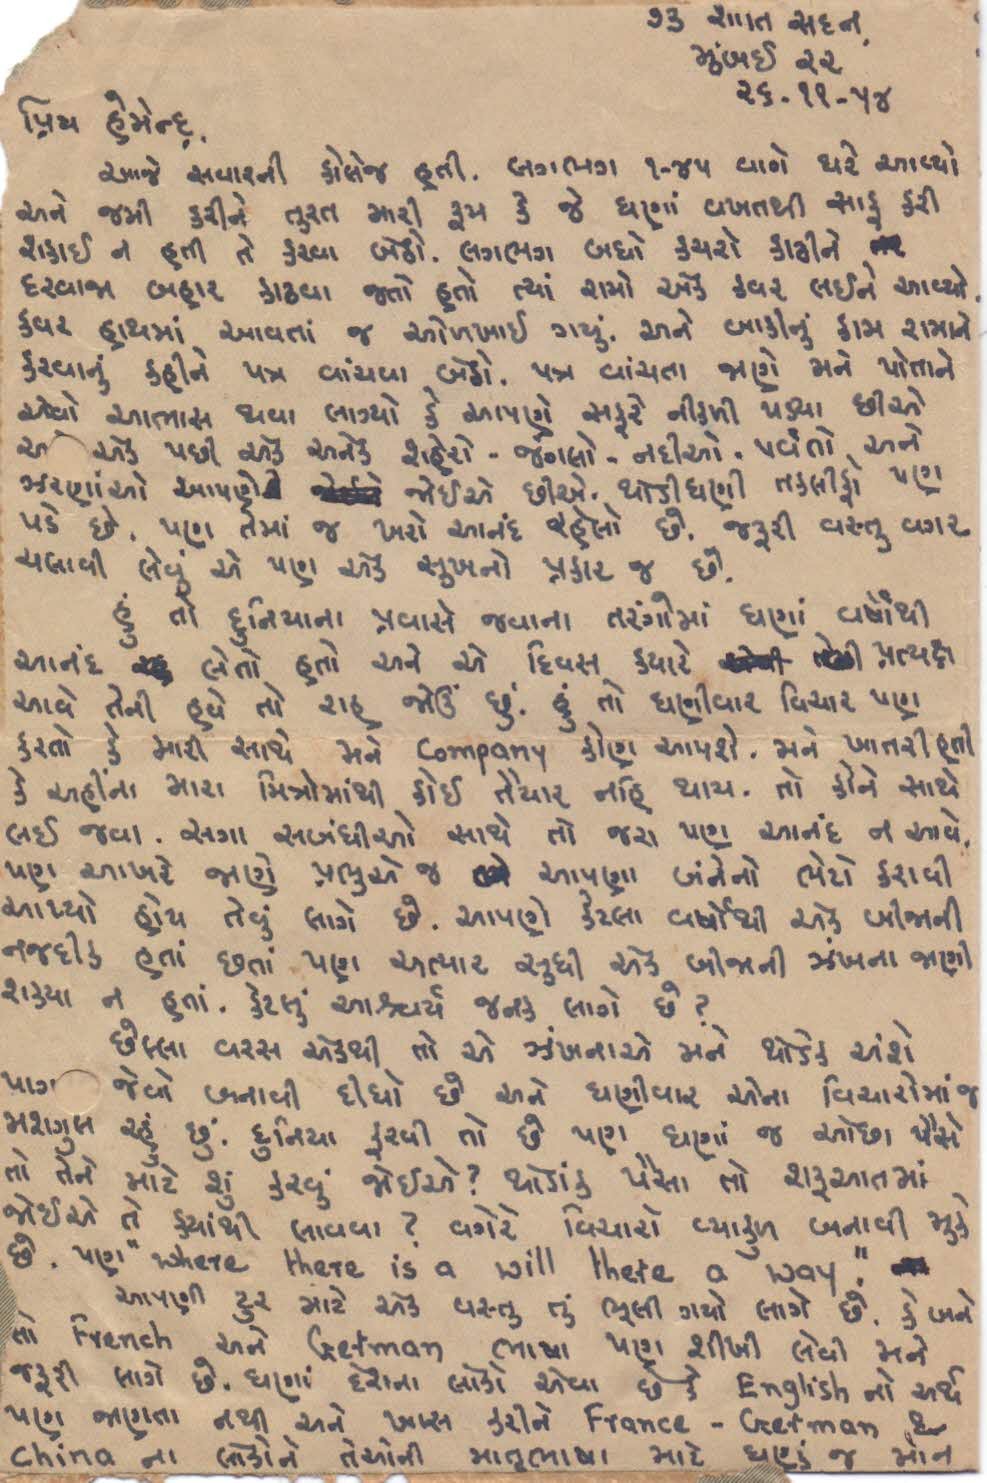 ૭૩ શાંત સદન,
મુંબઈ ૨૨
૨૬-૧૧-૫૪
પ્રિય હેમેન્દ્ર,
આજે સવારની કોલેજ હતી. લગભગ ૧-૪૫ વાગે ઘરે આવ્યો
અને જમી કરીને તુરત મારી રૂમ કે જે ઘણાં વખતથી સાફ કરી
શકાઈ ન હતી તે કરવા બેઠો. લગભગ બધો કચરો કાઢીને
દરવાજા બહાર કાઢવા જતો હતો ત્યાં રામો એક કવર લઈને આવ્યો.
કવર હાથમાં આવતાં જ ઓળખાઈ ગયું. અને બાકીનું કામ રામાને
કરવાનું કહીને પત્ર વાંચવા બેઠો. પત્ર વાંચતા જાણે મને પોતાને
એવો આભાસ થવા લાગ્યો કે આપણે સફરે નીકળી પડ્યા છીએ
એક પછી એક અનેક શહેરો - જંગલો - નદીઓ. પર્વતો અને
ઝરણાંઓ આપણે જોઈએ છીએ. થોડીઘણી તકલીફો પણ
પડે છે. પણ તેમાં જ ખરો આનંદ રહેલો છે. જરૂરી વસ્તુ વગર
ચલાવી લેવું એ પણ એક સુખનો પ્રકાર જ છે.
હું તો દુનિયાના પ્રવાસે જવાના તરંગોમાં ઘણાં વર્ષોથી
આનંદ લેતો હતો અને એ દિવસ ક્યારે પ્રત્યક્ષ
આવે તેની હવે તો રાહ જોઉં છું. હું તો ઘણીવાર વિચાર પણ
કરતો કે મારી સાથે મને company કોણ આપશે. મને ખાતરી હતી
કે અહીંના મારા મિત્રોમાંથી કોઈ તૈયાર નહિ થાય. તો કોને સાથે
લઈ જવા. સગા સબંધીઓ સાથે તો જરા પણ આનંદ ન આવે.
પણ આખરે જાણે પ્રભુએ જ આપણા બંનેનો ભેટો કરાવી
આપ્યો હોય તેવું લાગે છે. આપણે કેટલા વર્ષોથી એક બીજાની
નજદીક હતાં છતાં પણ અત્યાર સુધી એક બીજાની ઝંખના જાણી
શક્યા ન હતાં. કેટલું આશ્ચર્ય જનક લાગે છે?
છેલ્લા વરસ એકથી તો એ ઝંખનાએ મને થોડેક અંશે
પાગ જેવો બનાવી દીધો છે અને ઘણીવાર એના વિચારોમાં જ
મશગુલ રહું છું. દુનિયા ફરવી તો છે પણ ઘણાં જ ઓછા પૈસે
તો તેને માટે શું કરવું જોઈએ? થોડાંક પૈસા તો શરૂઆતમાં
જોઈએ તે ક્યાંથી લાવવા? વગેરે વિચારો વ્યાકુળ બનાવી મુકે
છે. પણ "where there is a will there a way."
આપણી ટુર માટે એક વસ્તુ તું ભૂલી ગયો લાગે છે. કે બને
તો French અને German ભાષા પણ શીખી લેવી મને
જરૂરી લાગે છે. ઘણાં દેશના લોકો એવા છે કે English નો અર્થ
પણ જાણતા નથી અને ખાસ કરીને France - German &
China ના લોકોને તેઓની માતૃભાષા માટે ઘણું જ માન